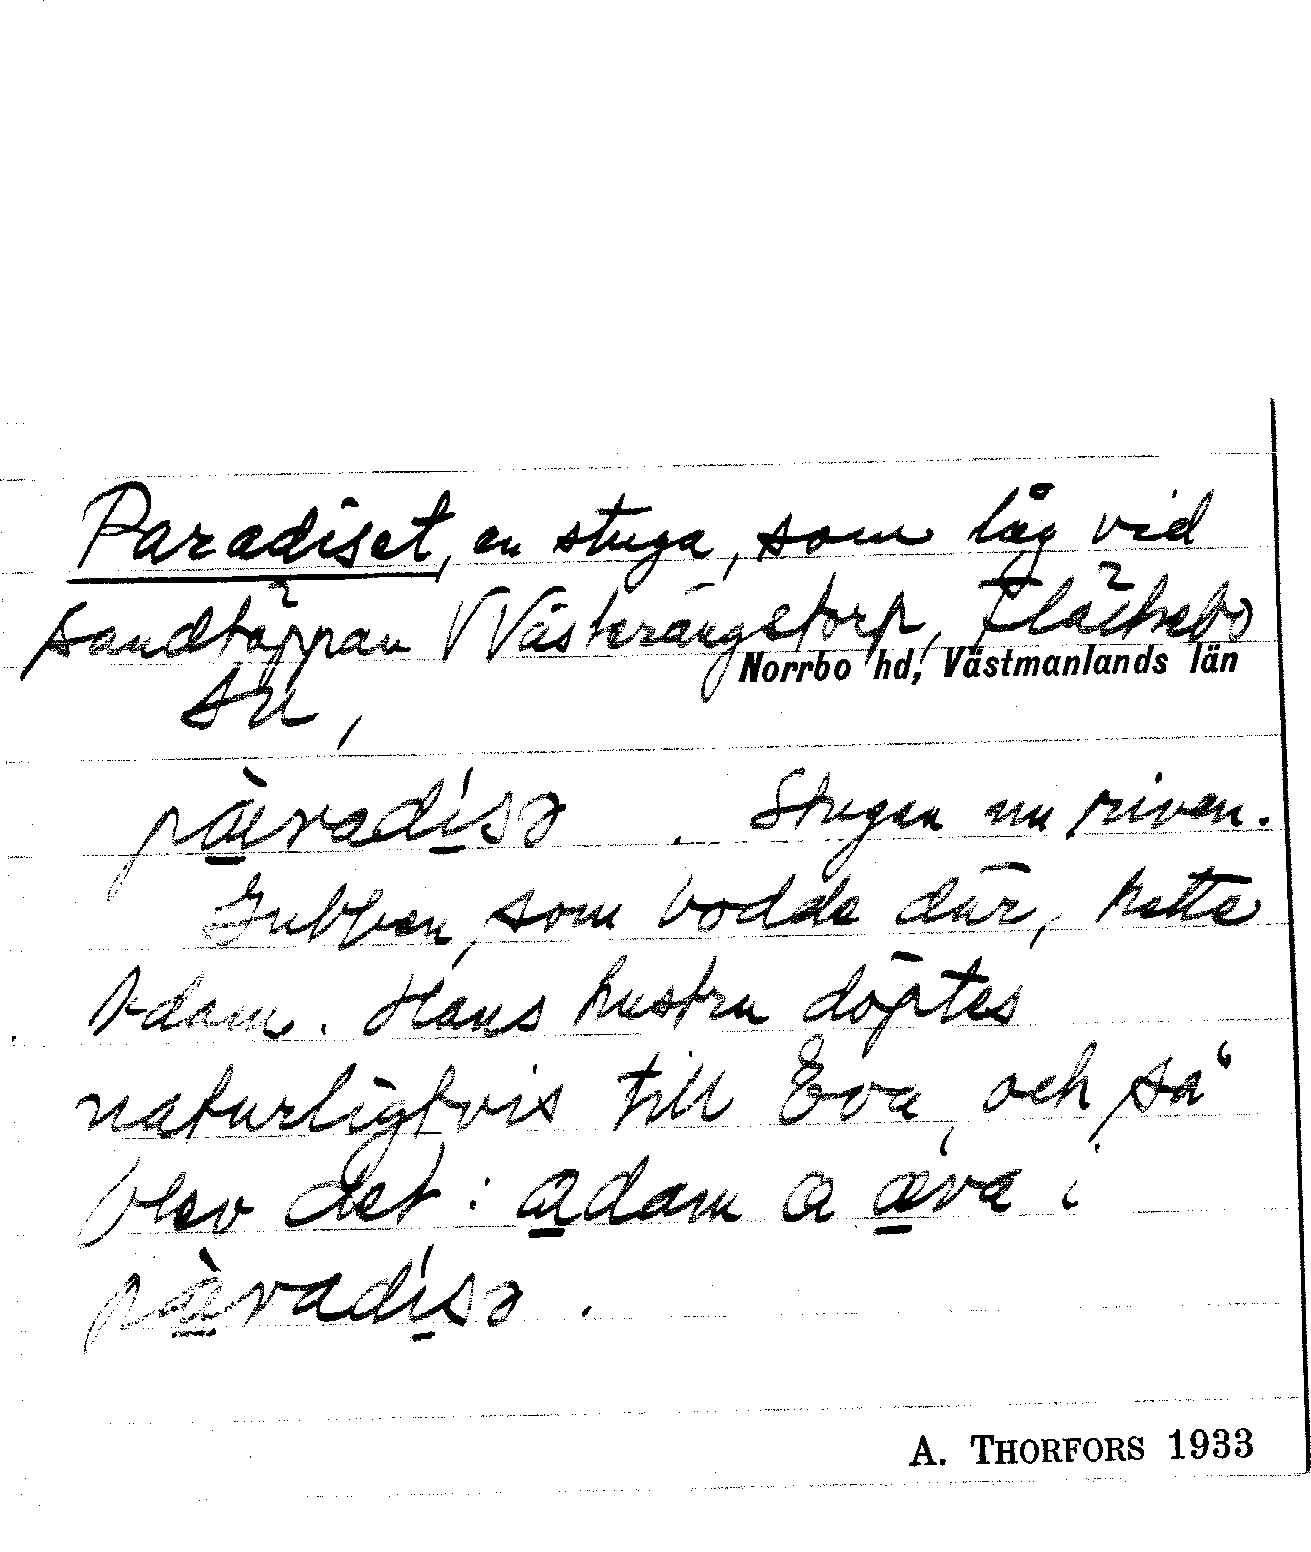 Paradiset, en stuga, som låg vid
Sandtäppan V Västerängstorp, Fläckebo
Norrbo hd, Västmanlands län
sn,
pàradísə . Stugan nu riven.
Gubben, som bodde där, hette
Adam. Hans hustru döptes
naturligtvis till Eva, och så
blev det: adam a æva i
pàradísə .
A. THORFORS 1933